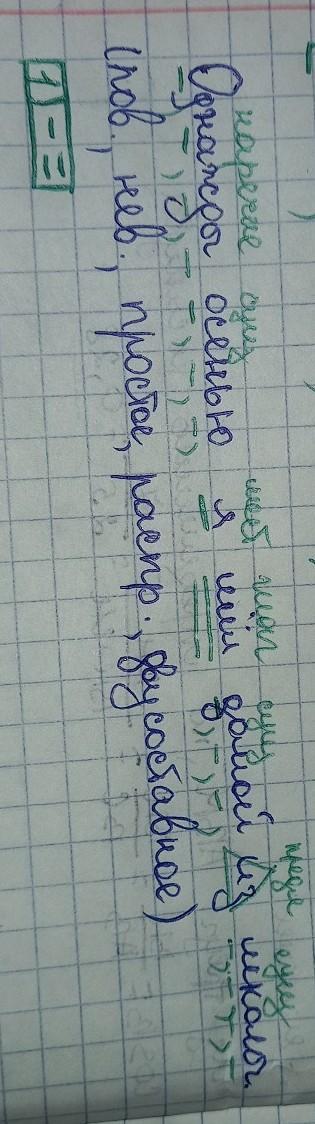 наречие сущ мест глаг сущ предл сущ
Однажды осенью я шёл домой из школы.
(пов., нев., простое, распр., двусоставное)
[1) - =]